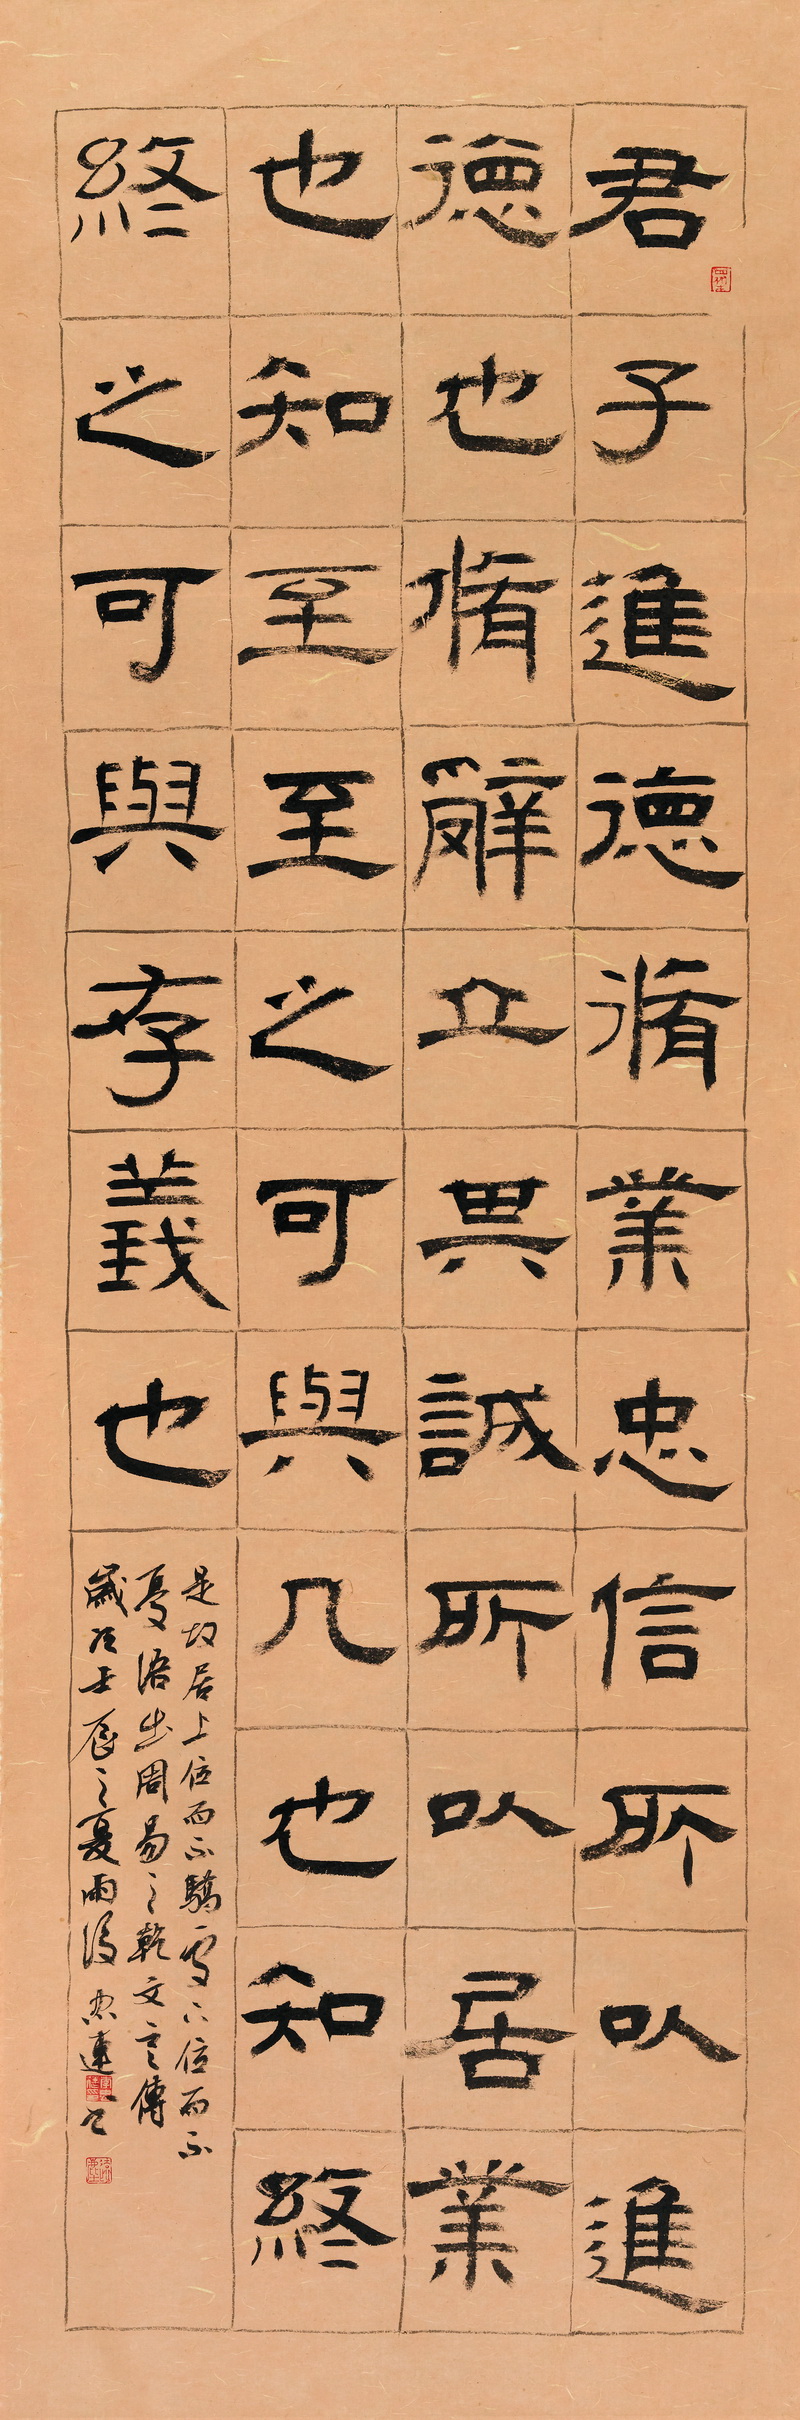 君子進德脩業忠信所以進
德也脩辭立其誠所以居業
也知至至之可與几也知終
終之可與存義也
是故居上位而不驕在下位而不
憂語出周易之乾文言傳
歲次壬辰之夏雨後 連